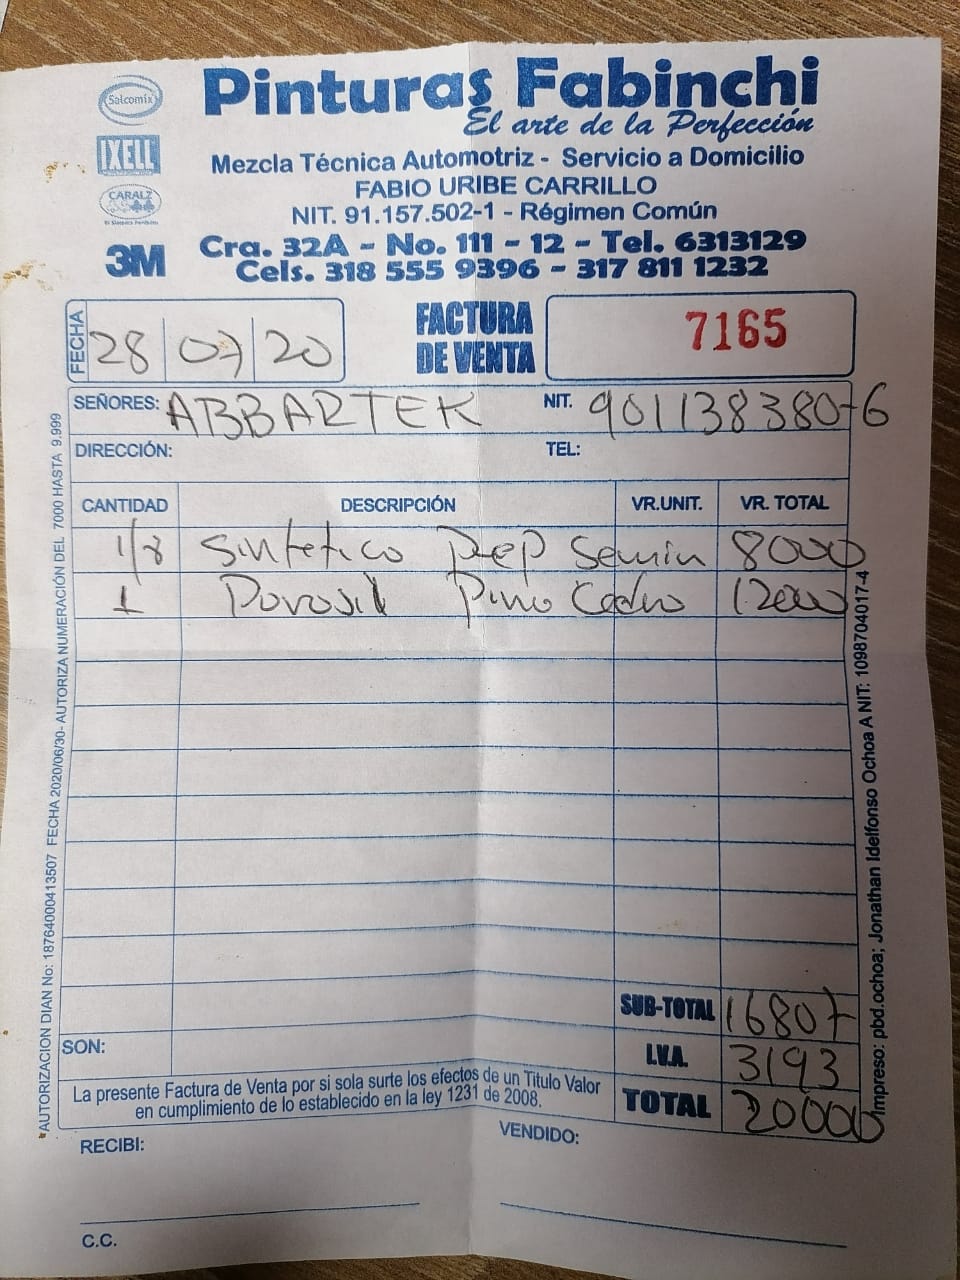 Salcomix
Pinturas Fabinchi
El arte de la Perfección
IXELL
Mezcla Técnica Automotriz - Servicio a Domicilio
CARALZ
FABIO URIBE CARRILLO
NIT. 91.157.502-1 - Régimen Común
3M
Cra. 32A - No. 111 - 12 - Tel. 6313129
Cels. 318 555 9396 - 317 811 1232
FECHA 28 07 20
FACTURA DE VENTA 7165
SEÑORES: ABBARTEK NIT. 901138380-6
DIRECCIÓN: TEL:
CANTIDAD DESCRIPCIÓN VR.UNIT. VR. TOTAL
1/8 Sintetico Prep Semin 8000
1 Porosil Pino Cedro 12000
SUB-TOTAL 16807
SON: I.V.A. 3193
La presente Factura de Venta por si sola surte los efectos de un Titulo Valor
en cumplimiento de lo establecido en la ley 1231 de 2008.
TOTAL 20000
RECIBI: VENDIDO:
C.C.
*AUTORIZACION DIAN No: 18764000413507 FECHA 2020/06/30- AUTORIZA NUMERACIÓN DEL 7000 HASTA 9.999
Impreso: pbd.ochoa; Jonathan Idelfonso Ochoa A NIT: 1098704017-4